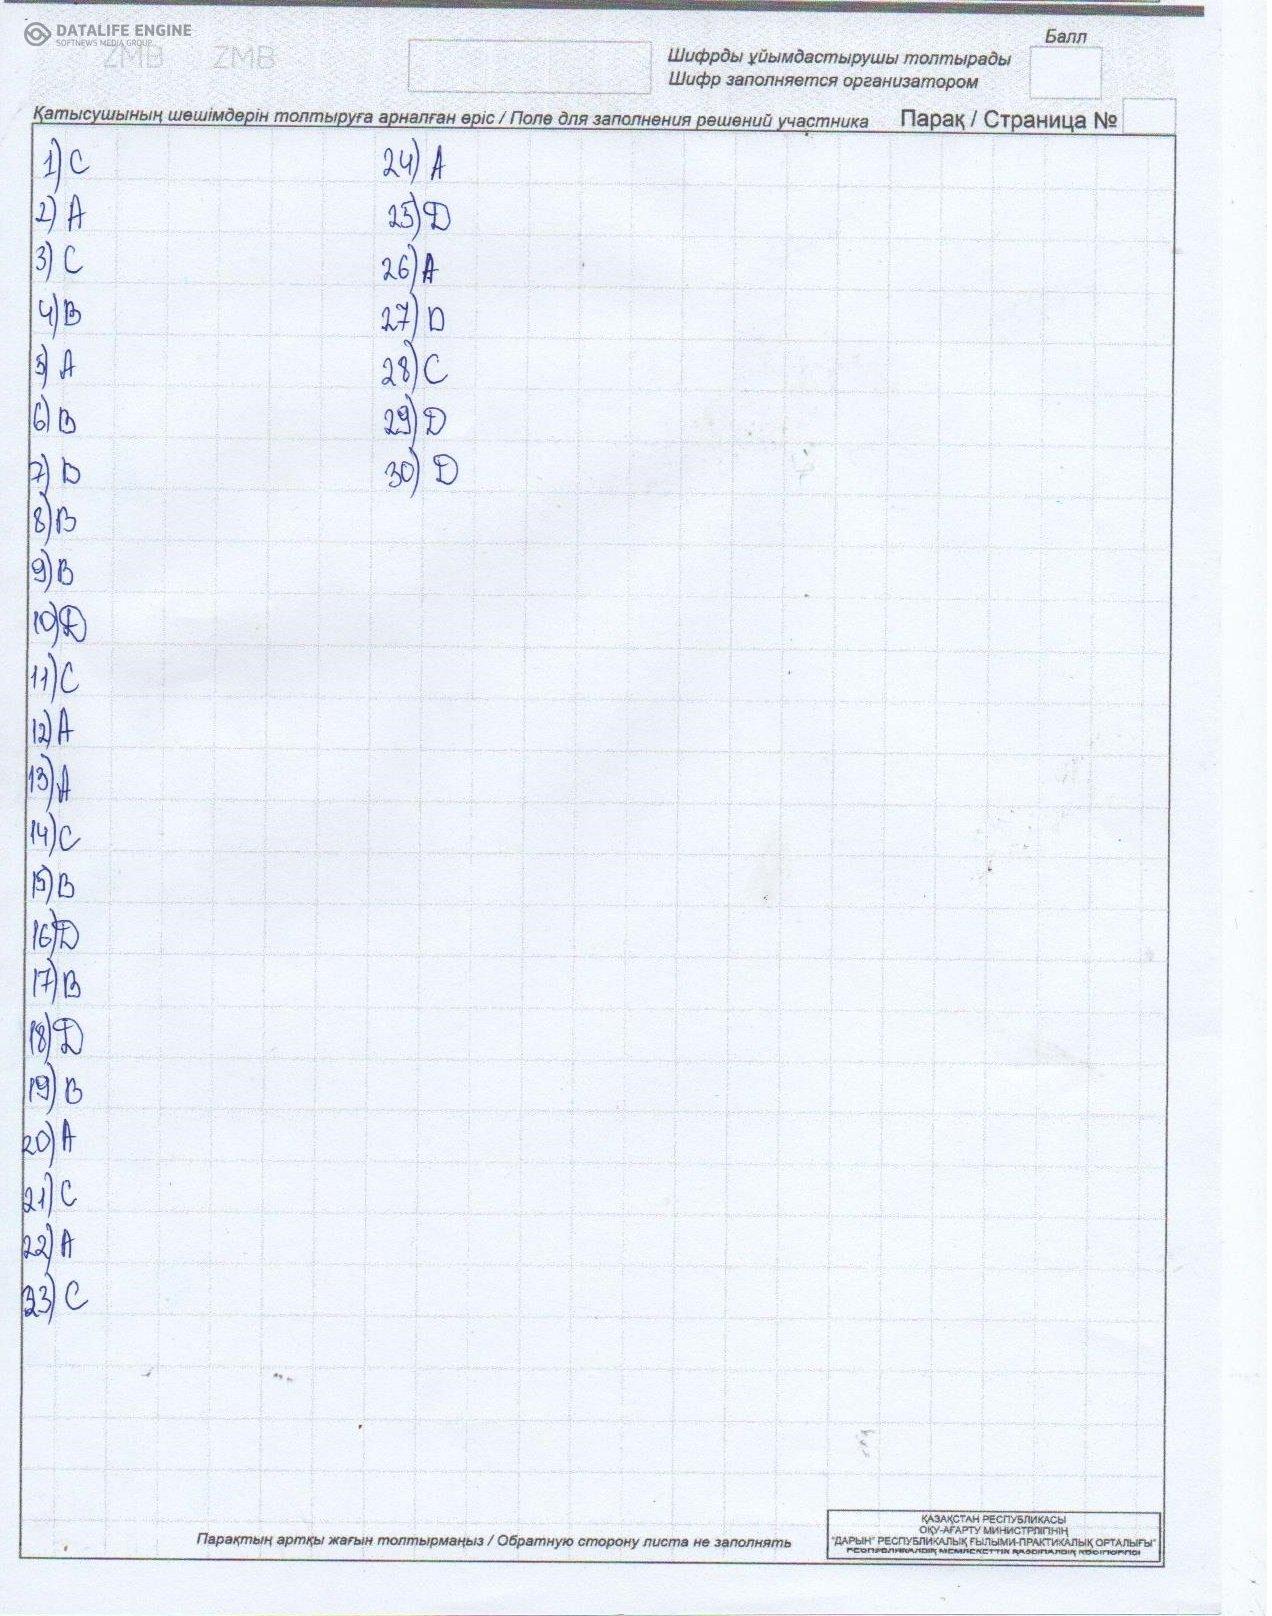 DATALIFE ENGINE
SOFTNEWS MEDIA GROUP
ZMB ZMB
Балл
Шифрды ұйымдастырушы толтырады
Шифр заполняется организатором
Қатысушының шешімдерін толтыруға арналған өріс / Поле для заполнения решений участника
Парақ / Страница №
1) C
2) A
3) C
4) B
5) A
6) B
7) D
8) B
9) B
10) D
11) C
12) A
13) A
14) C
15) B
16) D
17) B
18) D
19) B
20) A
21) C
22) A
23) C
24) A
25) D
26) A
27) D
28) C
29) D
30) D
Парақтың артқы жағын толтырмаңыз / Обратную сторону листа не заполнять
ҚАЗАҚСТАН РЕСПУБЛИКАСЫ
ОҚУ-АҒАРТУ МИНИСТРЛІГІНІҢ
"ДАРЫН" РЕСПУБЛИКАЛЫҚ ҒЫЛЫМИ-ПРАКТИКАЛЫҚ ОРТАЛЫҒЫ"
РЕСПУБЛИКАЛЫҚ МЕМЛЕКЕТТІК ҚАЗЫНАЛЫҚ КӘСІПОРНЫ